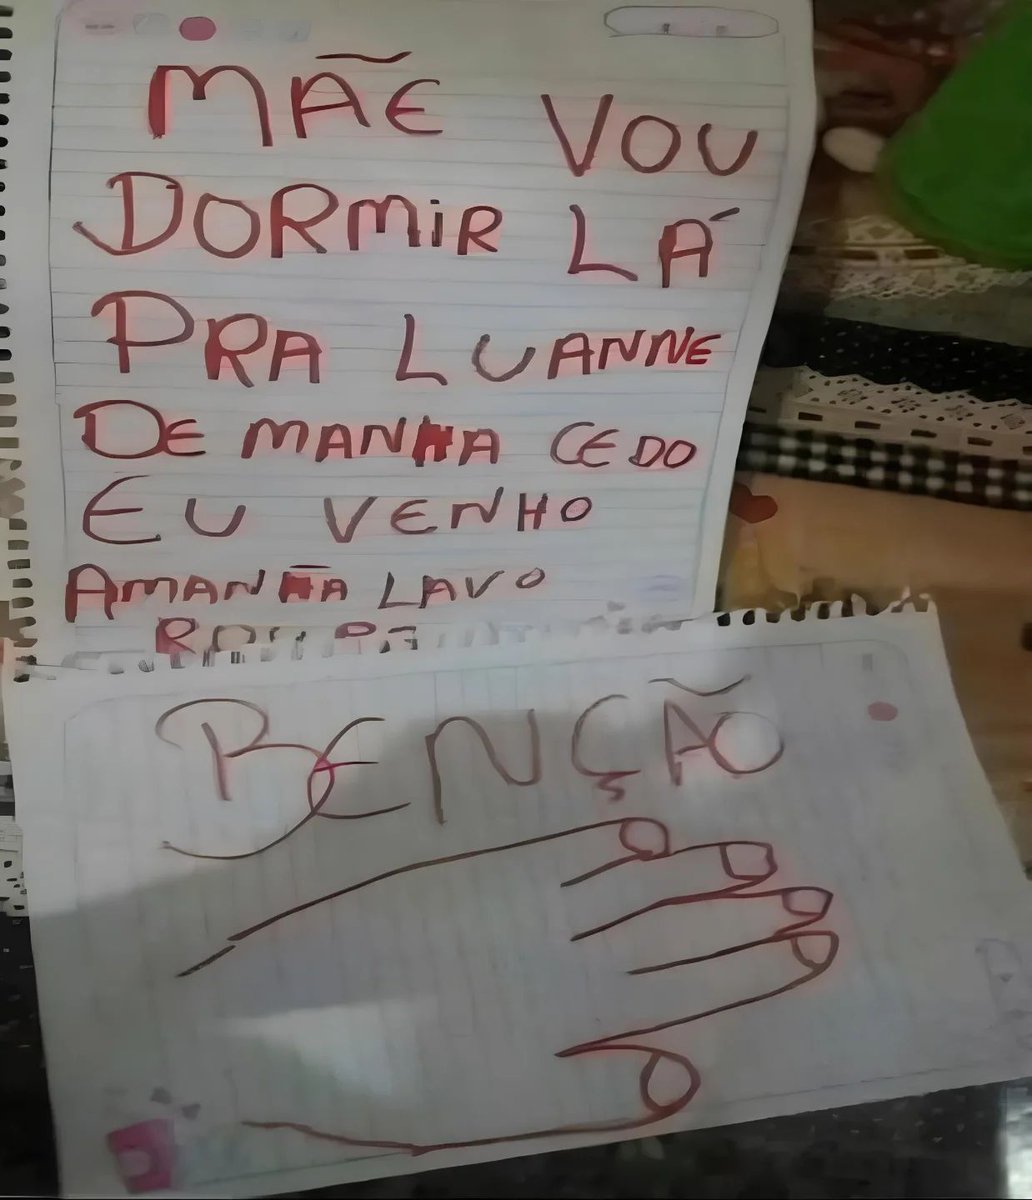 MÃE VOU
DORMIR LÁ
PRA LUANNE
DE MANHA CEDO
EU VENHO
AMANHÃ LAVO
ROUPA
BENÇÃO